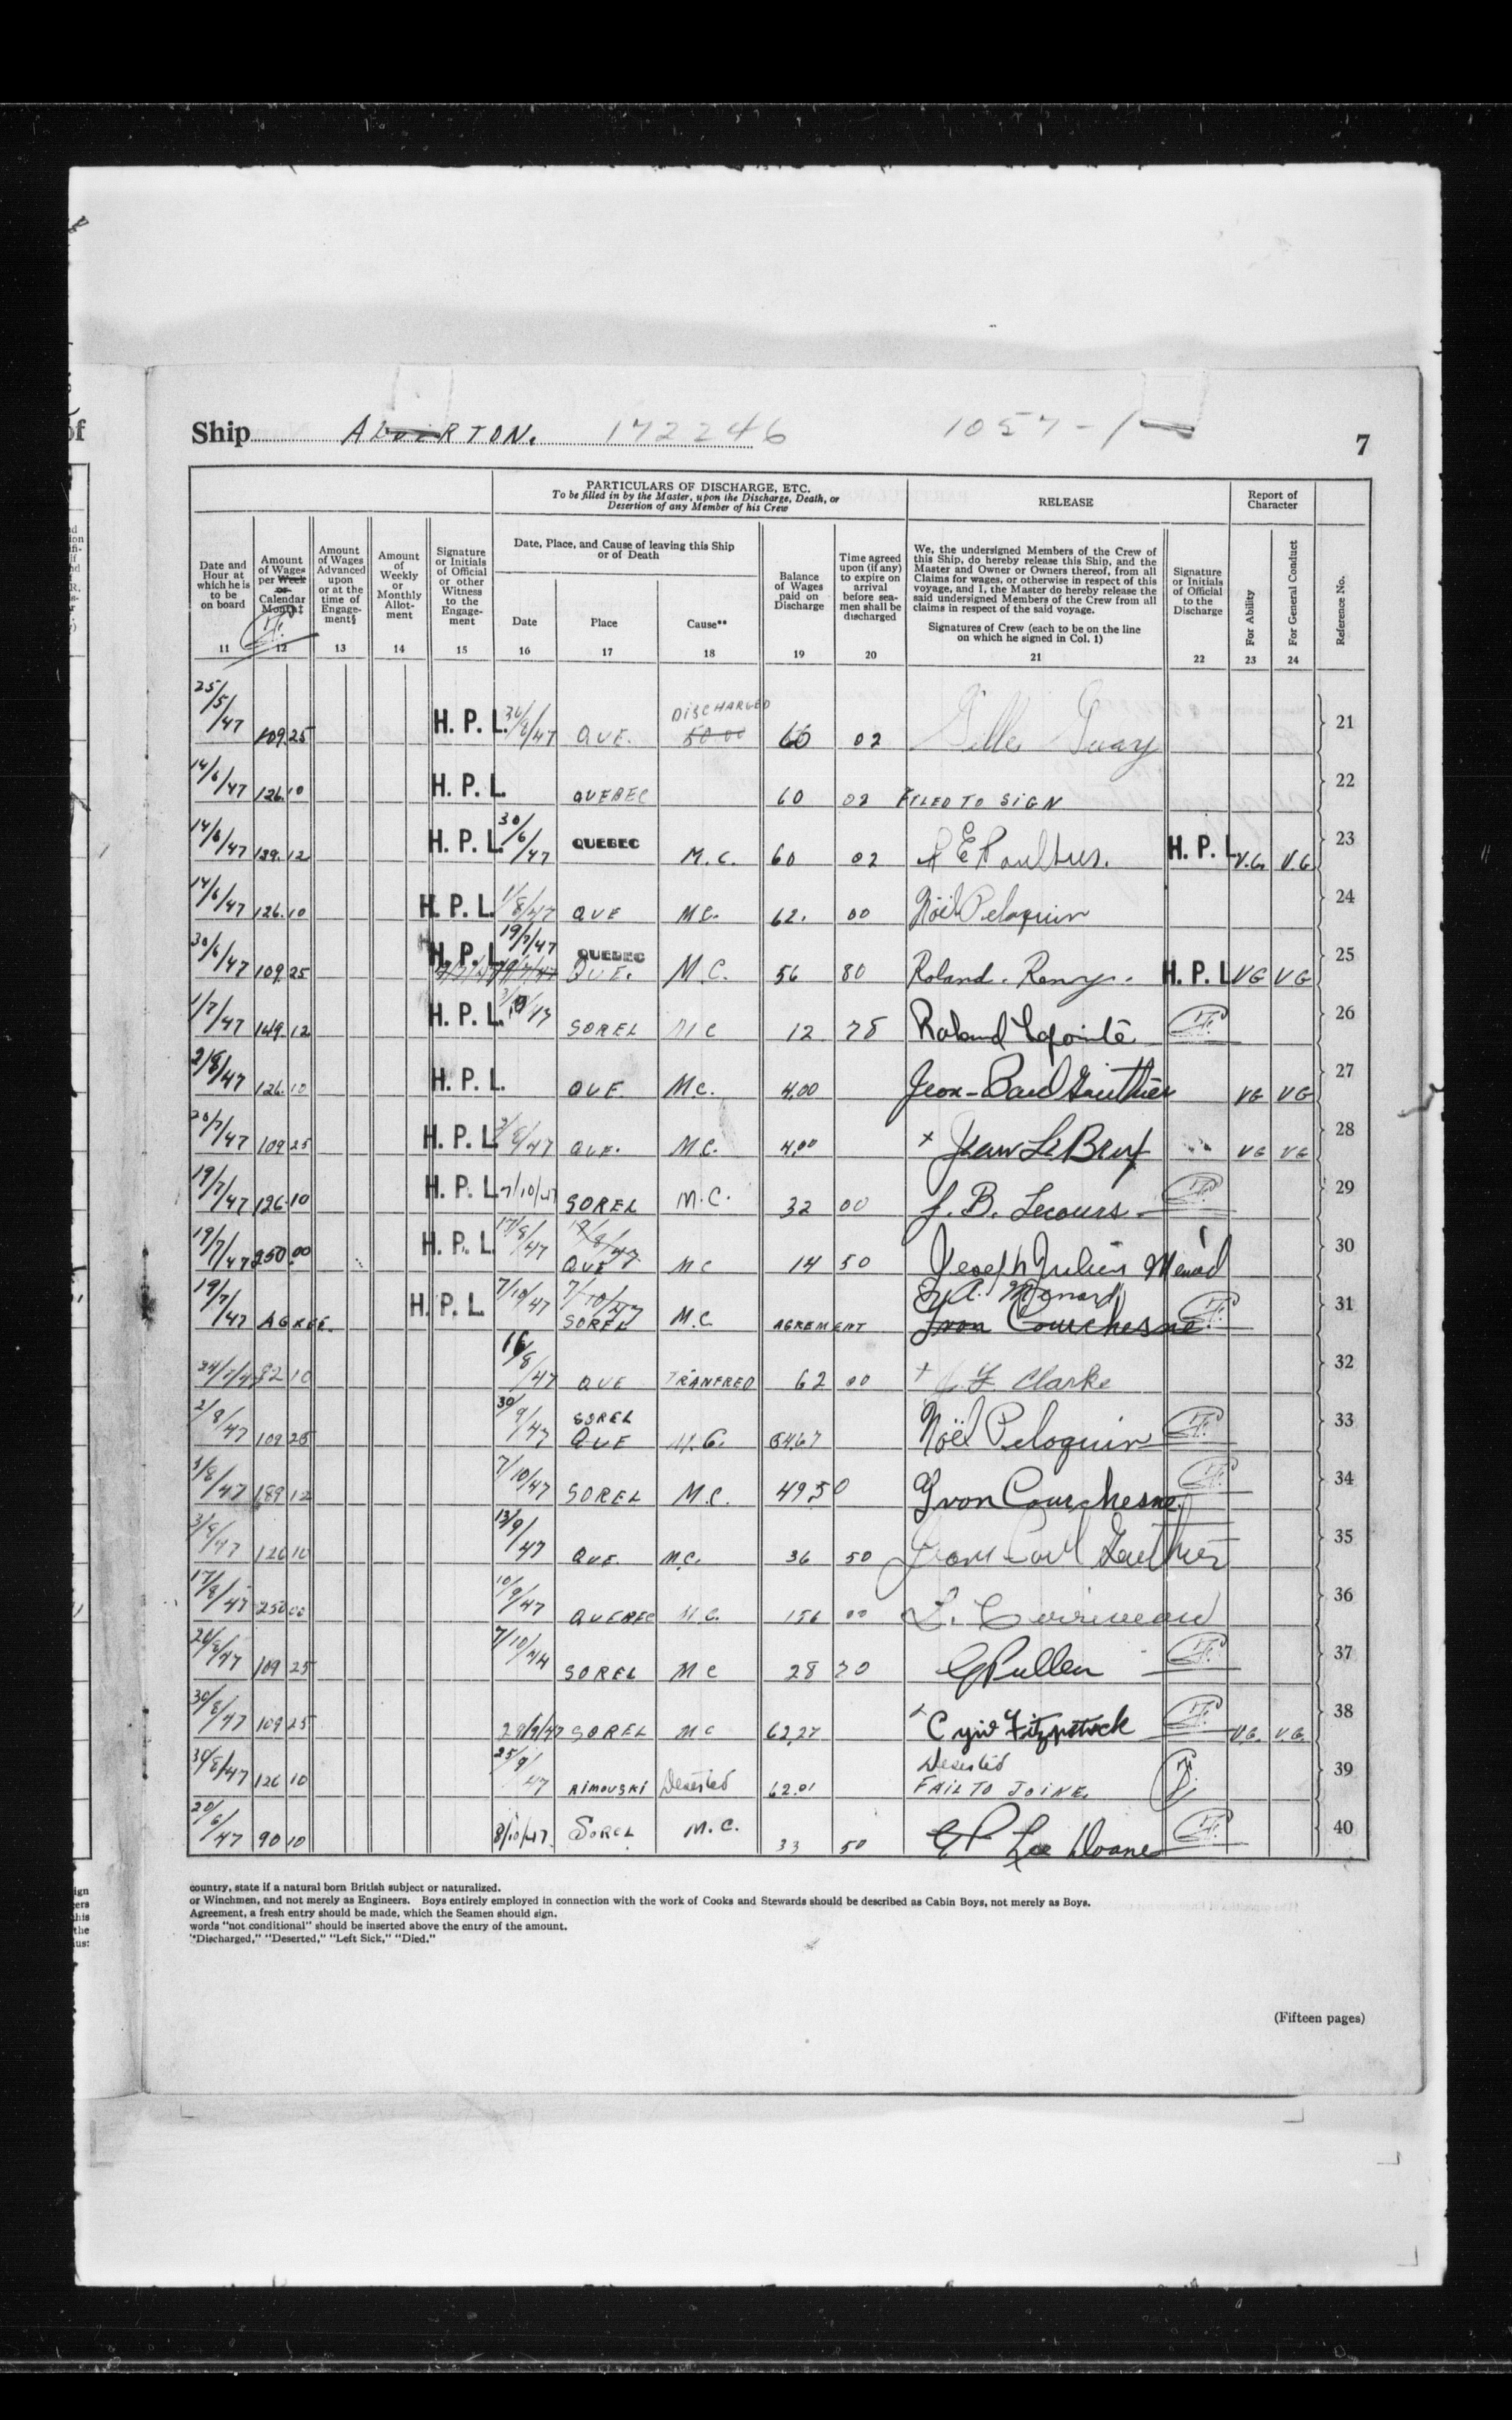 Ship ALVERTON. 172246 1057-1
7
PARTICULARS OF DISCHARGE, ETC.
To be filled in by the Master, upon the Discharge, Death, or
Desertion of any Member of his Crew
RELEASE
Report of
Character
Date and
Hour at
which he is
to be
on board
Amount
of Wages
per Week
or
Calendar
Month‡
Amount
of Wages
Advanced
upon
or at the
time of
Engage-
ment§
Amount
of
Weekly
or
Monthly
Allot-
ment
Signature
or Initials
of Official
or other
Witness
to the
Engage-
ment
Date, Place, and Cause of leaving this Ship
or of Death
Date
Place
Cause**
Balance
of Wages
paid on
Discharge
Time agreed
upon (if any)
to expire on
arrival
before sea-
men shall be
discharged
We, the undersigned Members of the Crew of
this Ship, do hereby release this Ship, and the
Master and Owner or Owners thereof, from all
Claims for wages, or otherwise in respect of this
voyage, and I, the Master do hereby release the
said undersigned Members of the Crew from all
claims in respect of the said voyage.
Signatures of Crew (each to be on the line
on which he signed in Col. 1)
Signature
or Initials
of Official
to the
Discharge
For Ability
For General Conduct
Reference No.
11 12 13 14 15 16 17 18 19 20 21 22 23 24
25/5/47 109 25 H. P. L. QUE. DISCHARGED 50.00 60 02 Guay 21
14/6/47 126 10 H. P. L. QUEBEC 60 02 FILED TO SIGN 22
14/6/47 139 12 H. P. L. 30/6/47 QUEBEC M.C. 60 02 H. P. L. V.G. V.G 23
14/6/47 126 10 H. P. L. 1/8/47 QUE M.C. 62. 00 Noël Peloquin 24
30/6/47 109 25 H. P. L. 19/7/47 QUEBEC QUE. M.C. 56 80 Roland Remy. H. P. L VG VG 25
1/7/47 149 12 H. P. L. SOREL M C 12 75 Roland Lapointe 26
2/8/47 126 10 H. P. L. QUE. M.C. 4.00 Jean-Paul Gauthier VG VG 27
20/7/47 109 25 H. P. L. QUE. M.C. 4.00 + Jean LeBeuf VG VG 28
19/7/47 126 10 H. P. L. 7/10/47 SOREL M.C. 32 00 J. B. Lecours. 29
19/7/47 250 00 H. P. L. 17/8/47 17/8/47 QUE M C 14 50 Joseph Julien Menard 30
19/7/47 AGREE. H. P. L. 7/10/47 7/10/47 SOREL M.C. AGREMENT A. Menard Yvon Courchesne 31
24/7/47 82 10 16/8/47 QUE TRANFRED 62 00 + Clarke 32
2/8/47 109 25 30/9/47 SOREL QUE M.C. 5467 Noël Peloquin 33
3/8/47 189 12 7/10/47 SOREL M.C. 49 50 Yvon Courchesne 34
3/8/47 126 10 13/9/47 QUE. M.C. 36 50 Jean Paul Gauthier 35
17/8/47 250 00 10/9/47 QUEBEC M C. 156 00 36
109 25 SOREL M C 28 70 Pullen 37
30/8/47 109 25 28/9/47 SOREL M C 62.27 Fitzpatrick V.G. V.G. 38
30/8/47 126 10 25/9/47 RIMOUSKI Deserted 62.01 Deserted FAIL TO JOINE. 39
20/6/47 90 10 8/10/47 SOREL M.C. 33 50 Lee Doane 40
country, state if a natural born British subject or naturalized.
or Winchmen, and not merely as Engineers. Boys entirely employed in connection with the work of Cooks and Stewards should be described as Cabin Boys, not merely as Boys.
Agreement, a fresh entry should be made, which the Seamen should sign.
words "not conditional" should be inserted above the entry of the amount.
"Discharged," "Deserted," "Left Sick," "Died."
(Fifteen pages)